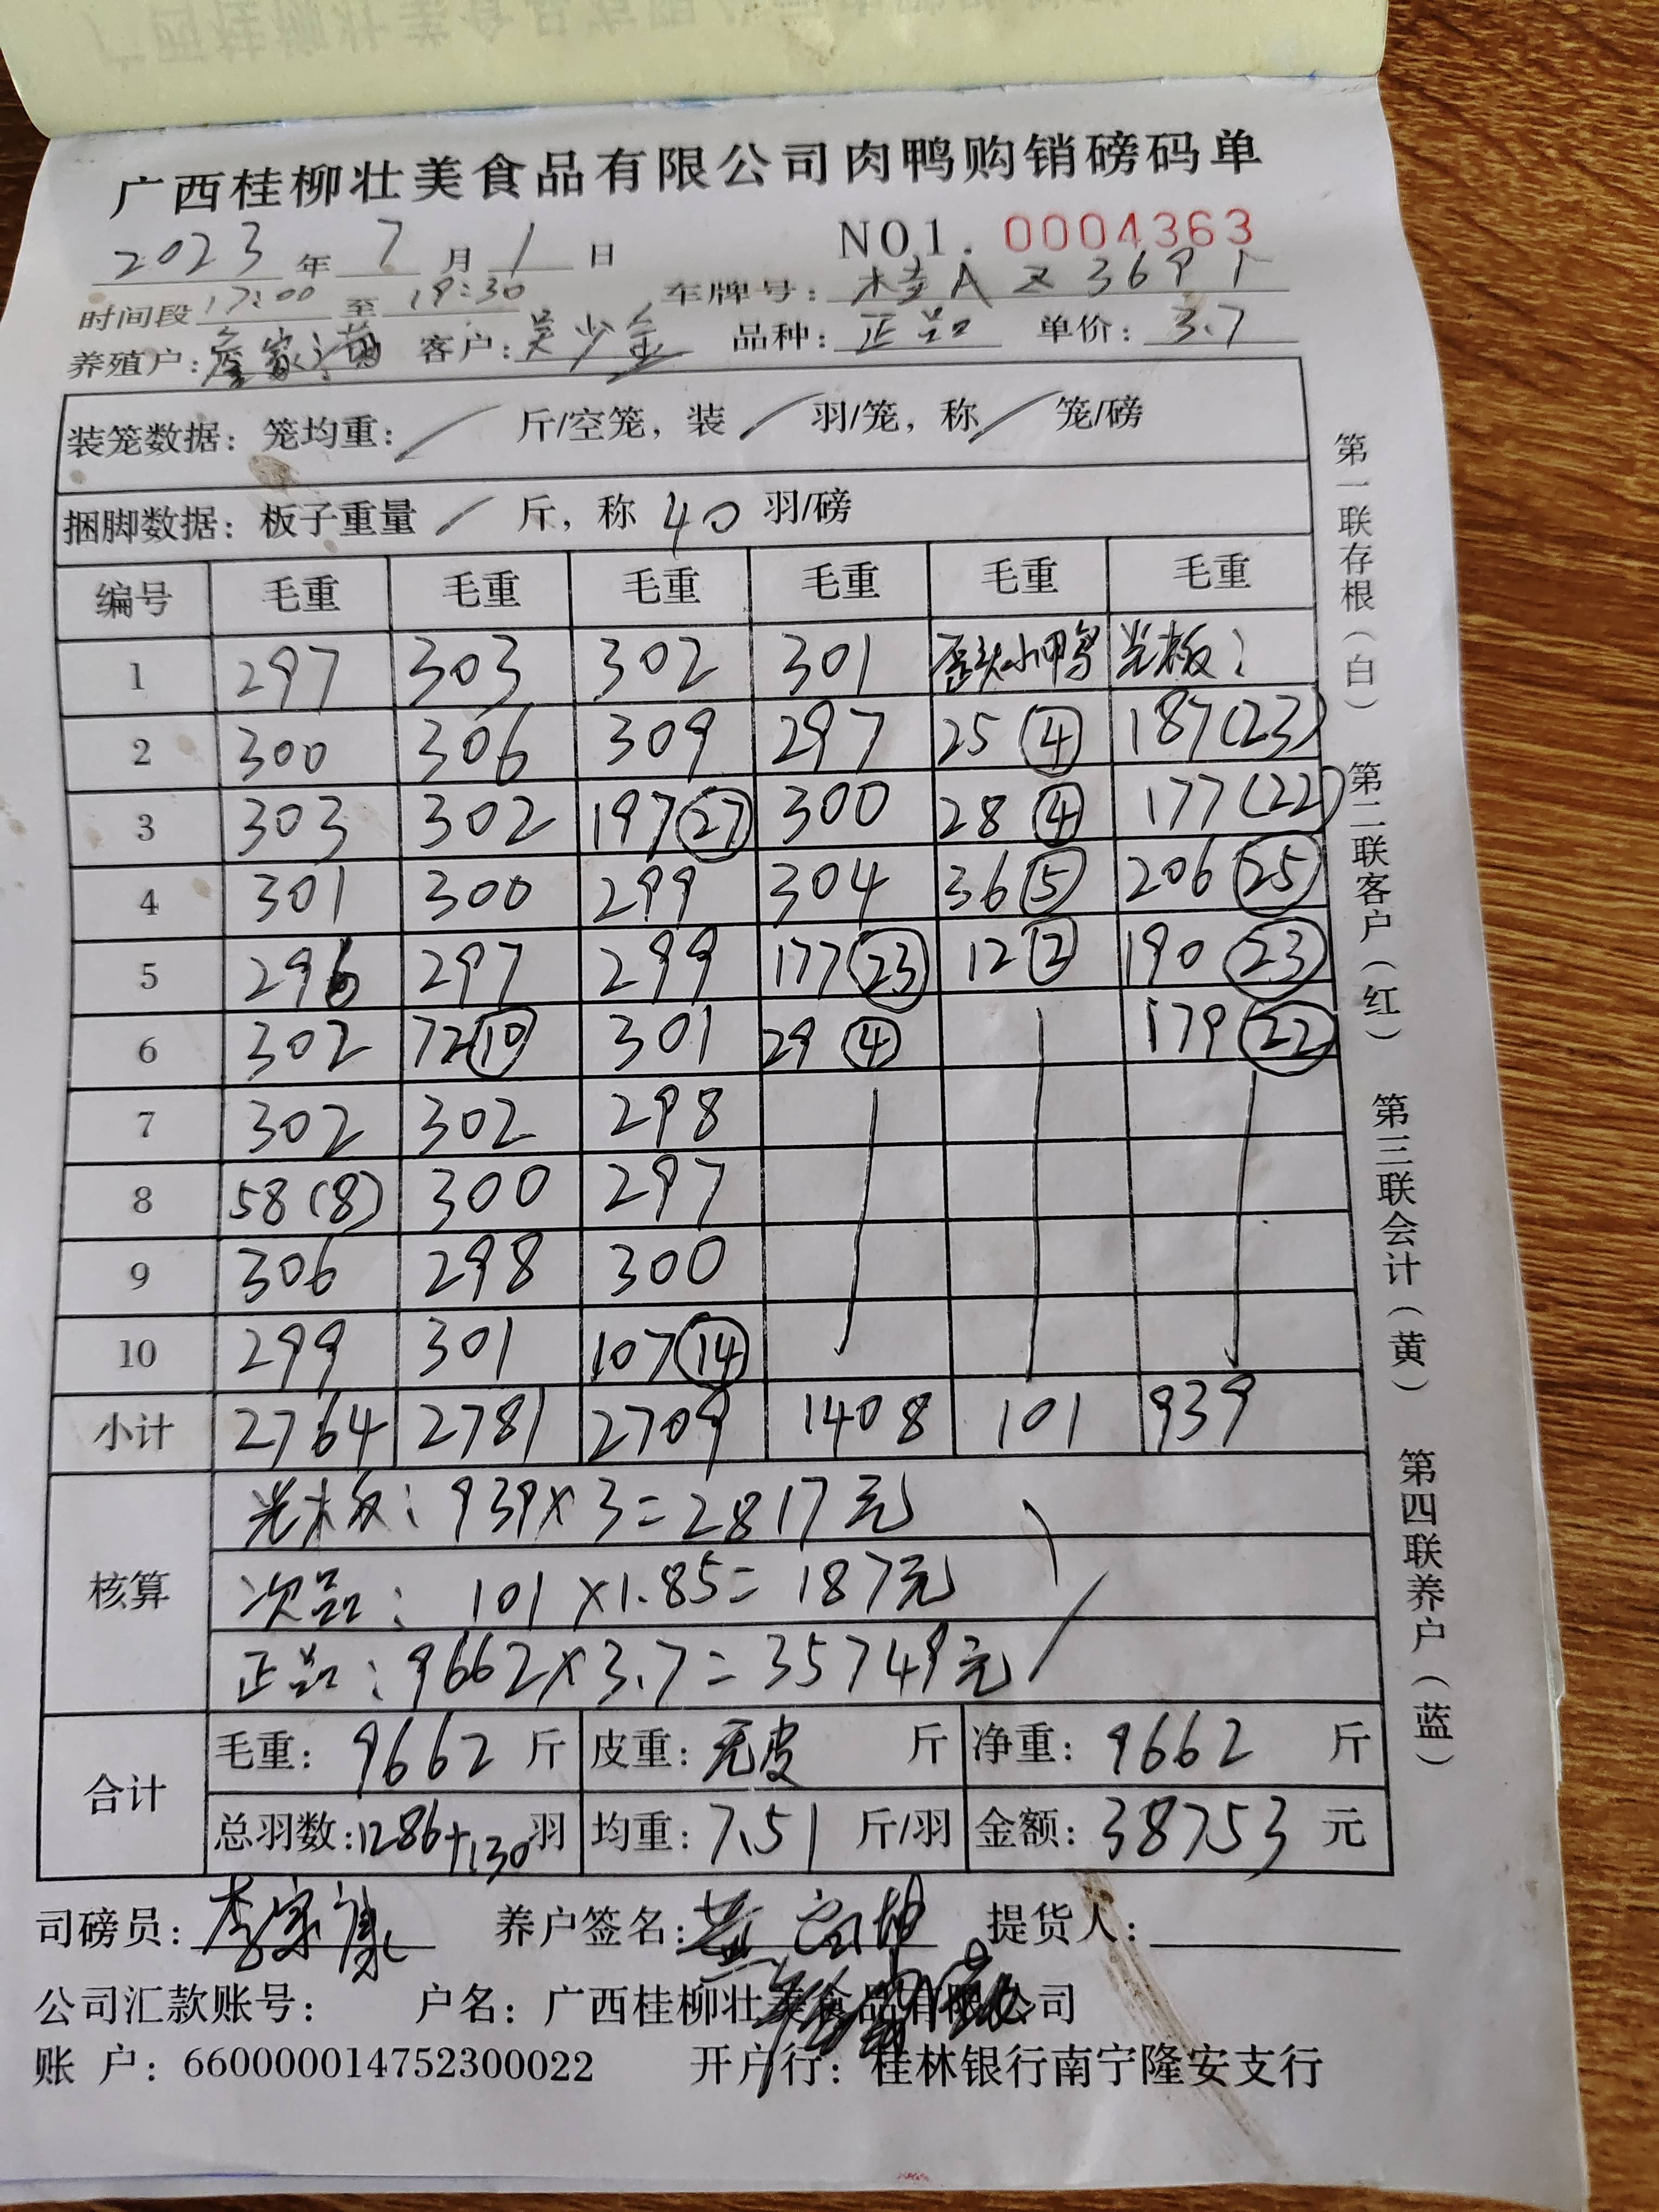 广西桂柳壮美食品有限公司肉鸭购销磅码单
2023 年 7 月 1 日 NO1. 0004363
时间段 17:00 至 19:30 车牌号: 桂A
养殖户: 客户: 吴少金 品种: 正品 单价: 3.7
装笼数据: 笼均重: / 斤/空笼, 装 / 羽/笼, 称 / 笼/磅
捆脚数据: 板子重量 / 斤, 称 40 羽/磅
编号 毛重 毛重 毛重 毛重 毛重 毛重
1 297 303 302 301 歪头小鸭 光板:
2 300 306 309 297 25 ④ 187(23)
3 303 302 197㉗ 300 28 ④ 177(22)
4 301 300 299 304 36⑤ 206㉕
5 296 297 299 177㉓ 12② 190㉓
6 302 72⑩ 301 29④ 179㉒
7 302 302 298
8 58(8) 300 297
9 306 298 300
10 299 301 107⑭
小计 2764 2781 2709 1408 101 939
核算
光板: 939×3=2817元
次品: 101×1.85=187元
正品: 9662×3.7=35749元
合计
毛重: 9662 斤 皮重: 无皮 斤 净重: 9662 斤
总羽数: 1286+130羽 均重: 7.51 斤/羽 金额: 38753 元
司磅员: 养户签名: 提货人:
公司汇款账号: 户名: 广西桂柳壮美食品有限公司
账 户: 660000014752300022 开户行: 桂林银行南宁隆安支行
第一联存根(白) 第二联客户(红) 第三联会计(黄) 第四联养户(蓝)